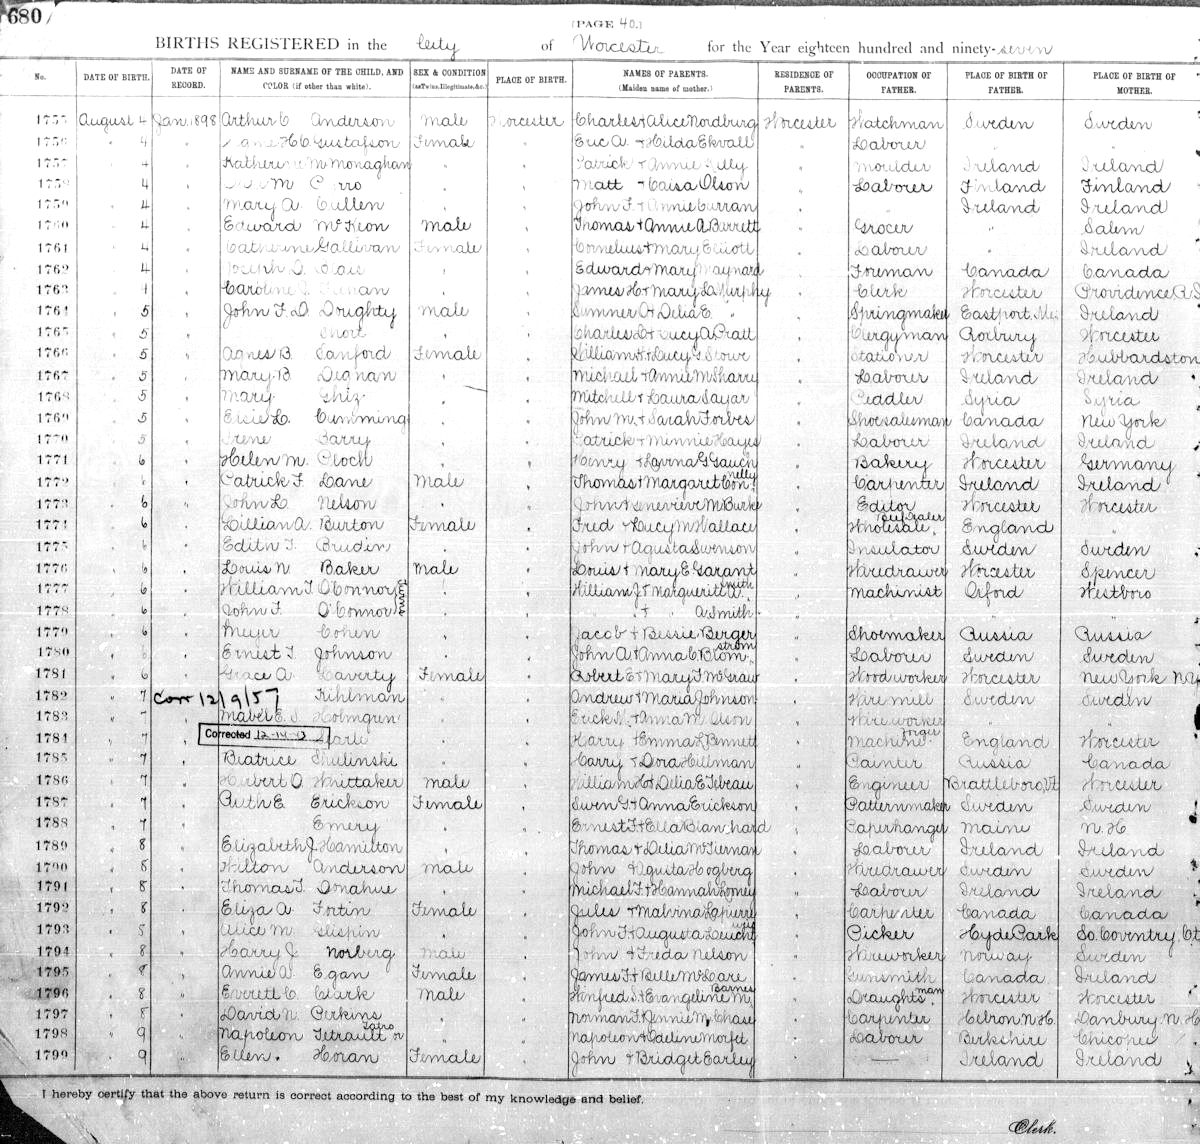 680
[PAGE 40.]
BIRTHS REGISTERED in the City of Worcester for the Year eighteen hundred and ninety-seven
No. DATE OF BIRTH. DATE OF RECORD. NAME AND SURNAME OF THE CHILD, AND COLOR (if other than white). SEX & CONDITION (as Twins, Illegitimate, &c.) PLACE OF BIRTH. NAMES OF PARENTS. (Maiden name of mother.) RESIDENCE OF PARENTS. OCCUPATION OF FATHER. PLACE OF BIRTH OF FATHER. PLACE OF BIRTH OF MOTHER.
1755 August 4 Jan. 1898 Arthur C Anderson Male Worcester Charles & Alice Nordburg Worcester Watchman Sweden Sweden
1756 " 4 " H C Gustafson Female " Eric A. & Hilda Ekvall " Laborer " "
1757 " 4 " Katherine M Monaghan " " Patrick & Annie " Moulder Ireland Ireland
1758 " 4 " M " " Matt & Caisa Olson " Laborer Finland Finland
1759 " 4 " Mary A. Cullen " " John F. & Annie Curran " " Ireland Ireland
1760 " 4 " Edward McKeon Male " Thomas & Annie A Barrett " Grocer " Salem
1761 " 4 " Catherine Gallivan Female " Cornelius & Mary " Laborer " Ireland
1762 " 4 " Joseph " " Edward & Mary Maynard " Foreman Canada Canada
1763 " 4 " Caroline " " James H & Mary L Murphy " Clerk Worcester Providence R.I
1764 " 5 " John F. D Doughty Male " Sumner A & Delia E. " " Springmaker Eastport, Me. Ireland
1765 " 5 " " " Charles L & Lucy A Pratt " Clergyman Roxbury Worcester
1766 " 5 " Agnes B Sanford Female " William H & Lucy G Stowe " Stationer Worcester Hubbardston
1767 " 5 " Mary B Degnan " " Michael & Annie McSharry " Laborer Ireland Ireland
1768 " 5 " Mary Ghiz " " Mitchell & Laura Sayar " Peddler Syria Syria
1769 " 5 " Elsie L. Cumming " " John M. & Sarah Forbes " Shoesalesman Canada New York
1770 " 5 " Irene Barry " " Patrick & Minnie Hayes " Laborer Ireland Ireland
1771 " 6 " Helen M. Ploch " " Henry & Lovina G Gauch " Bakery Worcester Germany
1772 " 6 " Patrick F Lane Male " Thomas & Margaret Connelly " Carpenter Ireland Ireland
1773 " 6 " John L Nelson " " John & Genevieve M Burke " Editor Worcester Worcester
1774 " 6 " Lillian A. Burton Female " Fred & Lucy M Wallace " Wholesale Beef Dealer England "
1775 " 6 " Edith T. Brudin " " John & Agusta Swenson " Insulator Sweden Sweden
1776 " 6 " Louis N Baker Male " Louis & Mary E Garant " Wiredrawer Worcester Spencer
1777 " 6 " William T O'Connor Twins " " William J & Marguerite A. Smith " Machinist Oxford Westboro
1778 " 6 " John F. O'Connor " " " & A Smith " " " "
1779 " 6 " Meyer Cohen " " Jacob & Bessie Berger " Shoemaker Russia Russia
1780 " 6 " Ernest T Johnson " " John A & Anna C Blomstrom " Laborer Sweden Sweden
1781 " 6 " Grace A. Laverty Female " Robert E & Mary F McGraw " Woodworker Worcester New York N.Y.
1782 " 7 Corr 12/9/57 Kihlman " " Andrew & Maria Johnson " Wire mill Sweden Sweden
1783 " 7 " Mabel E. S Holmgren " " Erick N. & Anna M Olson " Wireworker " "
1784 " 7 Corrected 12-14-42 Searle " " Harry & Emma L Bennett " Machine Forger England Worcester
1785 " 7 " Beatrice Shulinski " " Harry & Dora Hillman " Painter Russia Canada
1786 " 7 " Hubert O Whittaker Male " William H & Delia E Tebeau " Engineer Brattleboro, Vt Worcester
1787 " 7 " Ruth E Erickson Female " Swen G & Anna Erickson " Patternmaker Sweden Sweden
1788 " 7 " Emery " " Ernest F & Ella Blanchard " Paperhanger Maine N.H
1789 " 8 " Elizabeth J Hamilton " " Thomas & Delia McTiernan " Laborer Ireland Ireland
1790 " 8 " Hilton Anderson Male " John & Agusta Hogberg " Wiredrawer Sweden Sweden
1791 " 8 " Thomas F. Donahue " " Michael F & Hannah Looney " Laborer Ireland Ireland
1792 " 8 " Eliza A. Fortin Female " Jules & Malvina Lapierre " Carpenter Canada Canada
1793 " 8 " Alice M. " " John F & Augusta " Picker Hyde Park So. Coventry, Ct
1794 " 8 " Harry J Norberg Male " John & Freda Nelson " Wireworker Norway Sweden
1795 " 8 " Annie A. Egan Female " James F & Belle McLeare " Gunsmith Canada Ireland
1796 " 8 " Everett C. Clark Male " Winfred S & Evangeline M. Barnes " Draughtsman Worcester Worcester
1797 " 8 " David N. Perkins " " Norman F. & Jennie M. Chase " Carpenter Hebron N.H. Danbury N.H
1798 " 9 " Napoleon Tetrault or " " Napoleon & Adeline Morfet " Laborer Berkshire Chicopee
1799 " 9 " Ellen. Horan Female " John & Bridget Earley " — Ireland Ireland
I hereby certify that the above return is correct according to the best of my knowledge and belief.
Clerk.